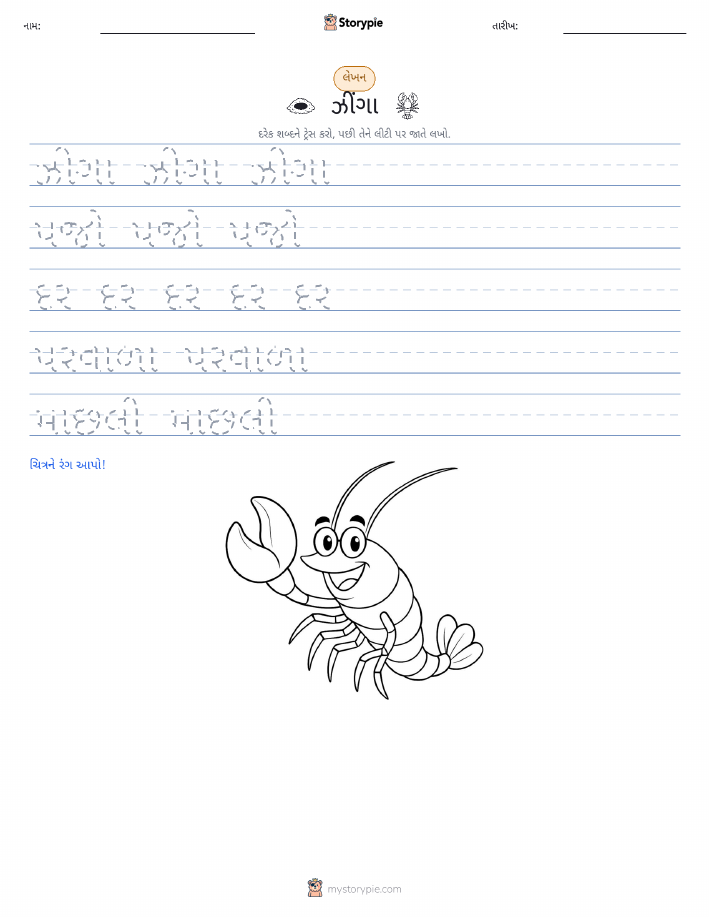 નામ:
Storypie
તારીખ:
લેખન
ઝીંગા
દરેક શબ્દને ટ્રેસ કરો, પછી તેને લીટી પર જાતે લખો.
ઝીંગા ઝીંગા ઝીંગા
પંજો પંજો પંજો
દર દર દર દર દર
પરવાળા પરવાળા
માછલી માછલી
ચિત્રને રંગ આપો!
mystorypie.com